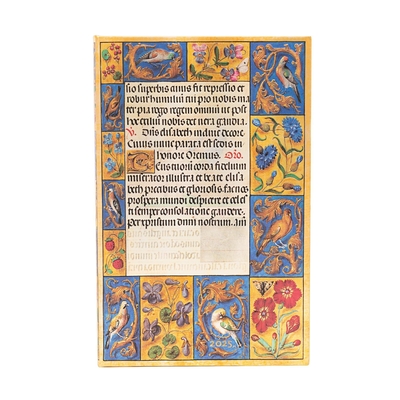 sio superbis aīuis fit repressio et
robur humiliū tui pro nobis ma
ter pia regem regem omniū ut post
hoc exiliū nobis det uera gaudia.
V. Dn̄s elisabeth induit decore
Cuius nunc parata est sedis in
honore Oremus. Oŕo.
tuorū corda fidelium
miserator illustra et beate elisa
beth precibus et gloriosis. facnos
prospera mundi despicere et celes
ti semper consolatione gaudere.
Per xp̄istum dn̄m nostrum. am̄
2025